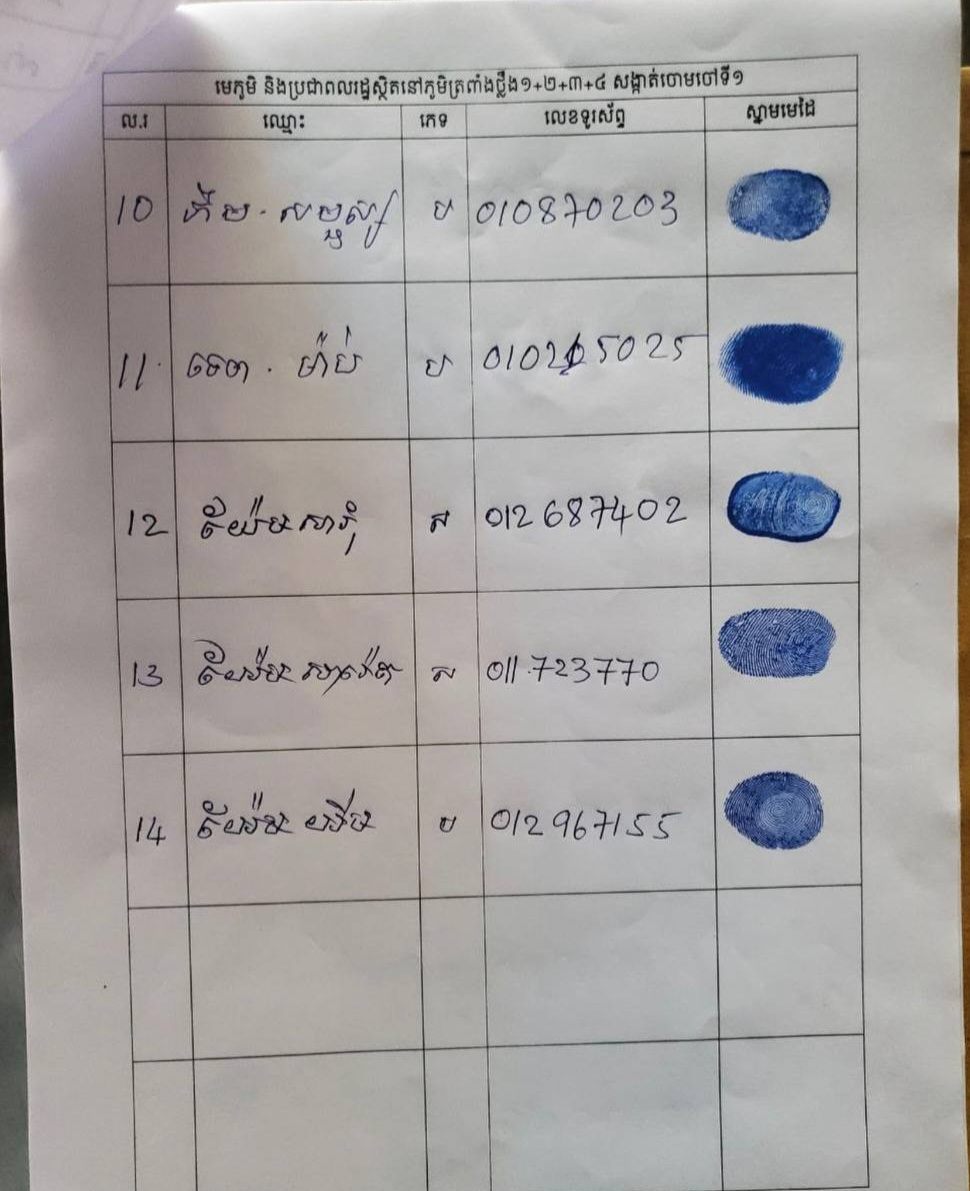 មេភូមិ និងប្រជាពលរដ្ឋស្ថិតនៅភូមិត្រពាំងថ្លឹង១+២+៣+៤ សង្កាត់ចោមចៅទី១
ល.រ ឈ្មោះ ភេទ លេខទូរស័ព្ទ ស្នាមមេដៃ
10 ប 010870203
11 ទេព ម៉ាប់ ប 010215025
12 សារុំ ស 012 687402
13 ស 011.723770
14 ប 012 967155